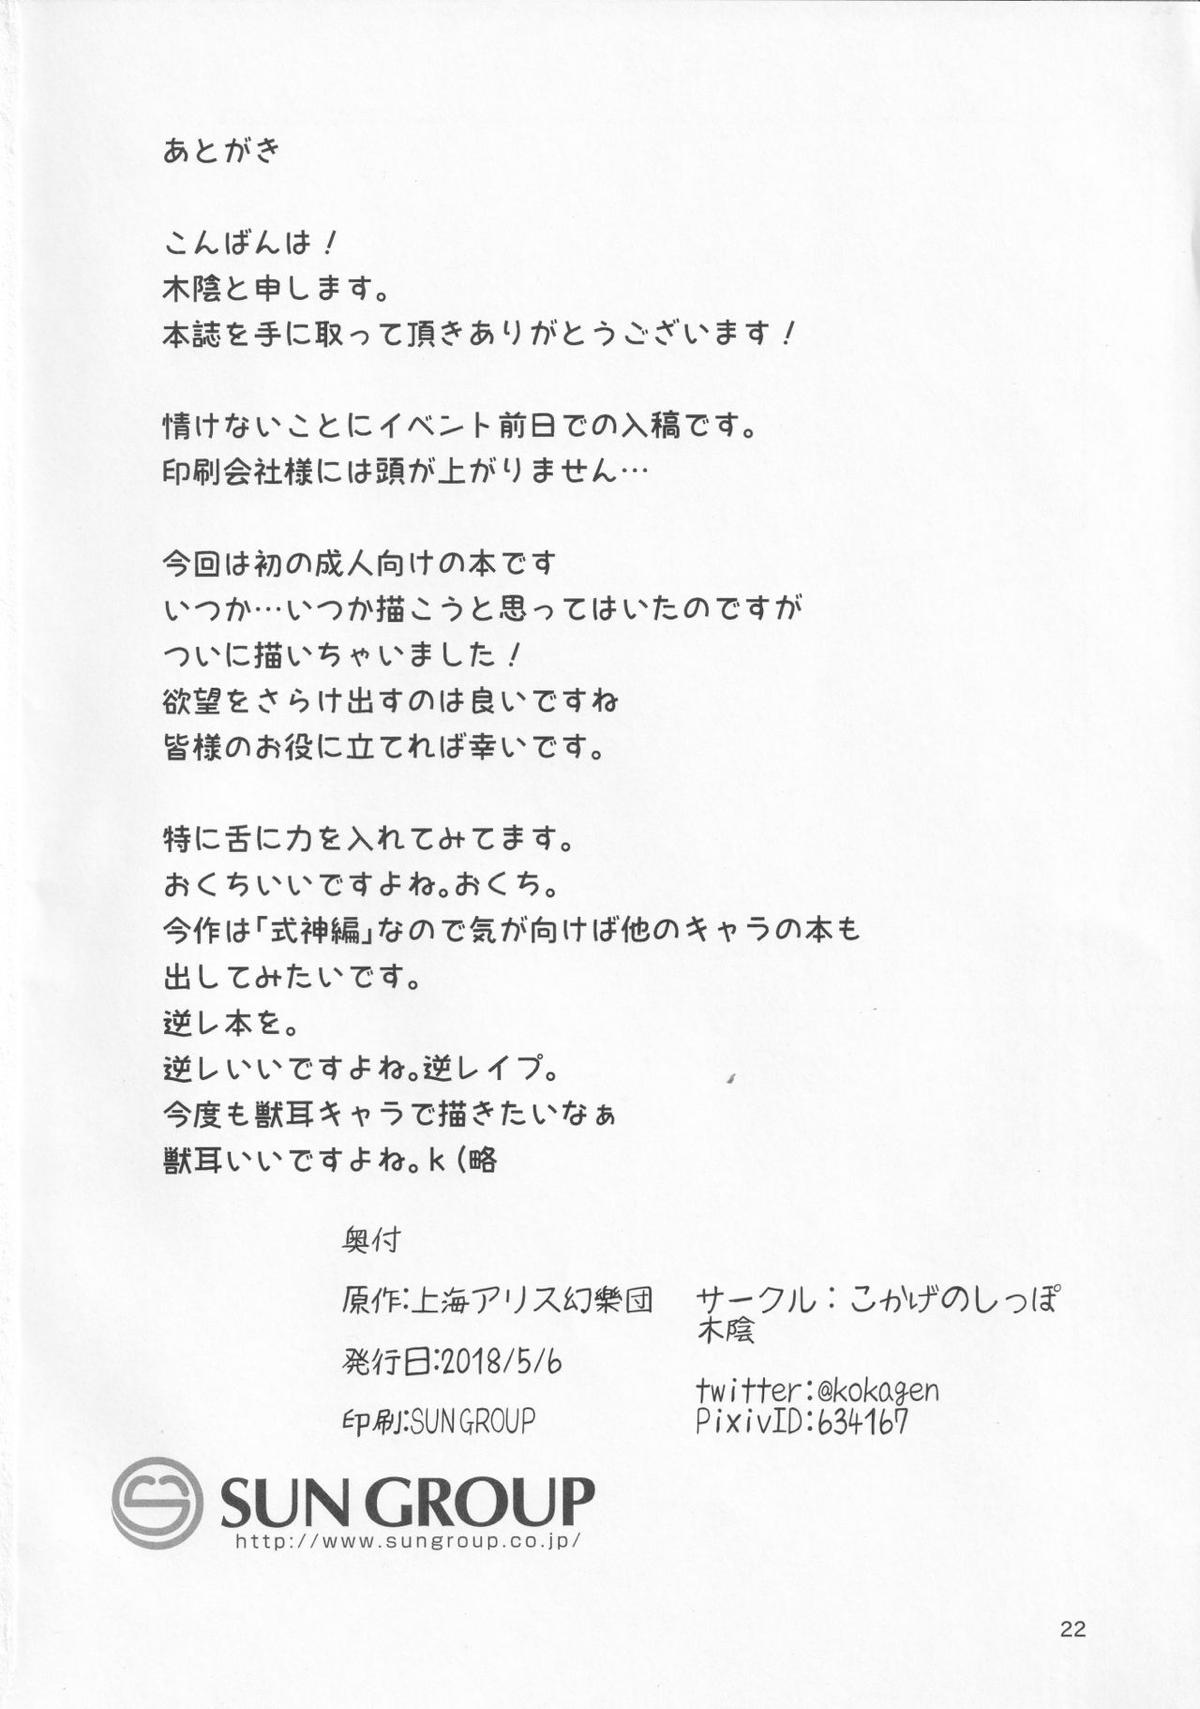 あとがき
こんばんは！
木陰と申します。
本誌を手に取って頂きありがとうございます！
情けないことにイベント前日での入稿です。
印刷会社様には頭が上がりません…
今回は初の成人向けの本です
いつか…いつか描こうと思ってはいたのですが
ついに描いちゃいました！
欲望をさらけ出すのは良いですね
皆様のお役に立てれば幸いです。
特に舌に力を入れてみてます。
おくちいいですよね。おくち。
今作は「式神編」なので気が向けば他のキャラの本も
出してみたいです。
逆レ本を。
逆レいいですよね。逆レイプ。
今度も獣耳キャラで描きたいなぁ
獣耳いいですよね。k（略
奥付
原作:上海アリス幻樂団
発行日:2018/5/6
印刷:SUN GROUP
サークル：こかげのしっぽ
木陰
twitter:@kokagen
PixivID:634167
SUN GROUP
http://www.sungroup.co.jp/
22